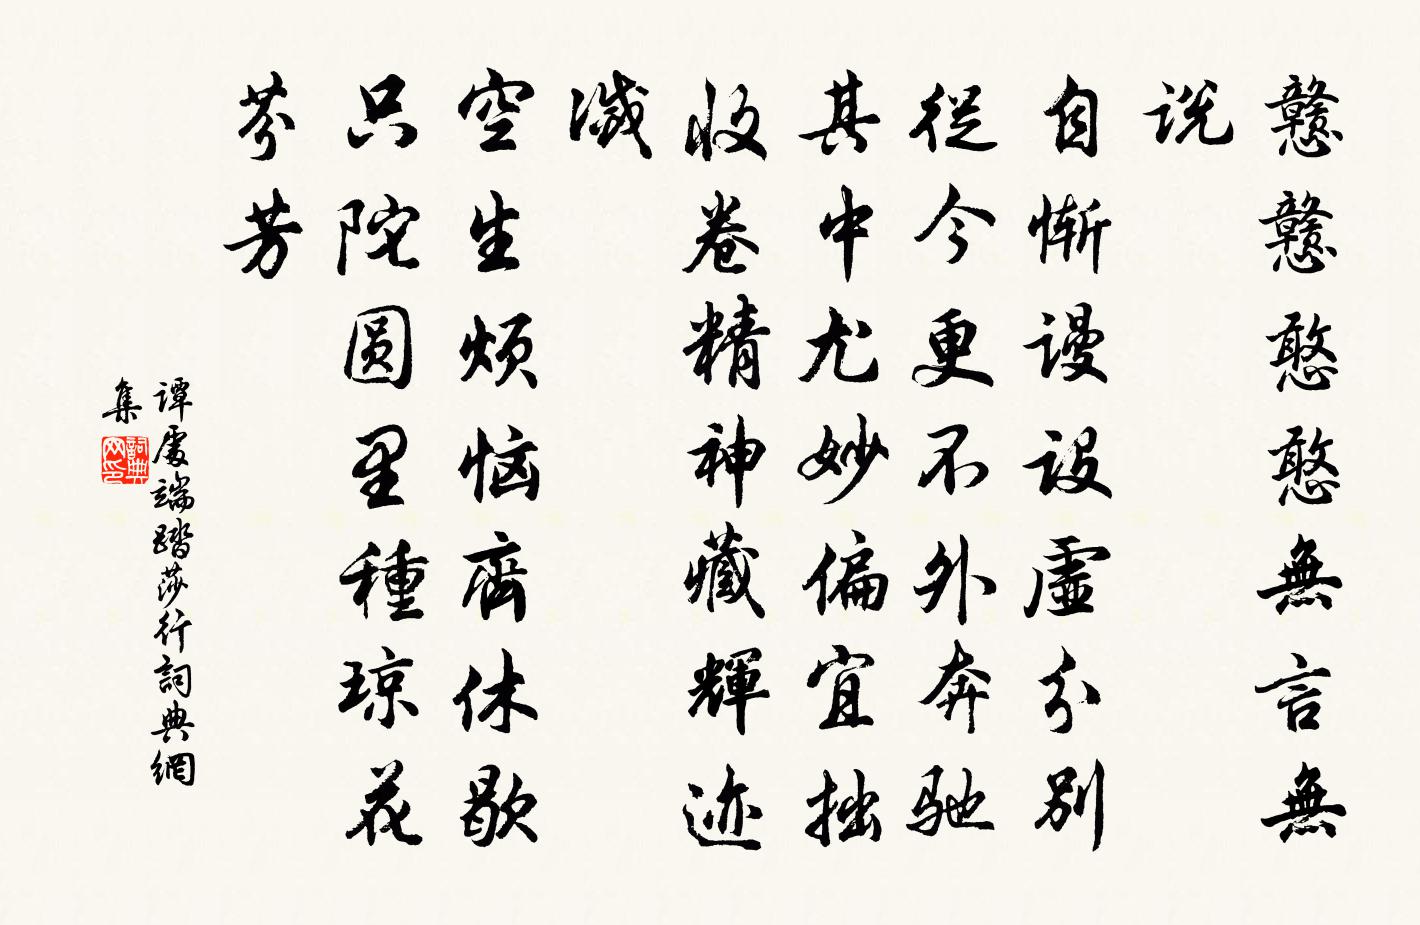 戇戇憨憨無言無
说
自惭谩设虛分别
從今更不外奔驰
其中尤妙偏宜拙
收卷精神藏輝迹
滅
空生烦恼齊休歇
只陀圆里種琼花
芬芳
譚處端踏莎行詞典網
集
詞典网印